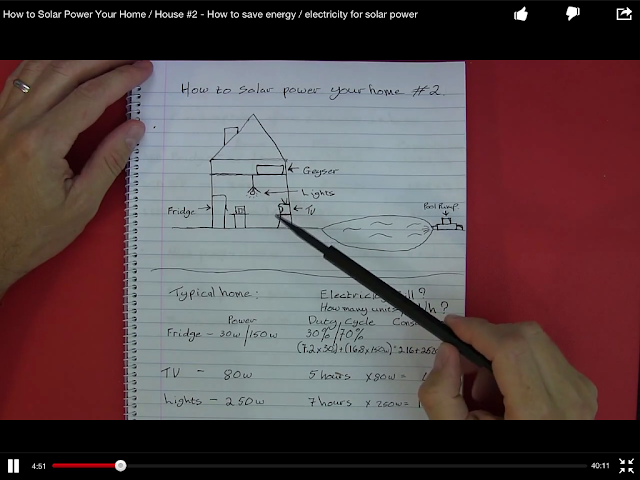 How to Solar Power Your Home / House #2 - How to save energy / electricity for solar power
How to solar power your home #2.
Geyser
Lights
Fridge
TV
Pool Pump
Typical home:
Electricity
How many units
h?
Power
Duty Cycle
Fridge - 30w/150w
30%/70%
(7.2x30)+(16.8x150w)=2.16+
TV - 80w
5 hours x80w=
Lights - 250w
7 hours x250w=
4:51
40:11